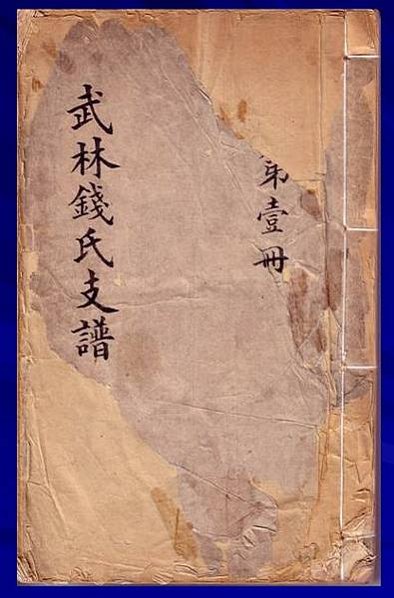 第壹冊
武林錢氏支譜